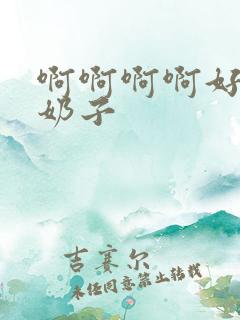 啊啊啊啊好
奶子
吉赛尔
未经同意禁止转载